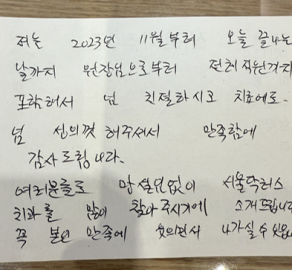 저는 2023년 11월부터 오늘 끝나는
날까지 원장님으로부터 전체 직원까지
포함해서 넘 친절하시고 치료에도
넘 신의껏 해주셔서 만족함에
감사드립니다.
여러분들도 망설임없이 서울닥터스
치과를 많이 찾아주시기에 소개드립니다
꼭 본인 만족에 웃으면서 나가실 수 있습니